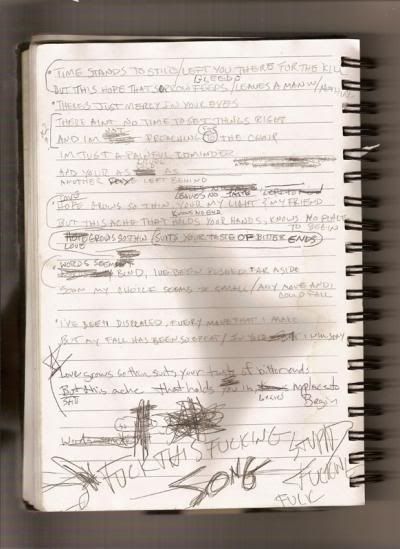 TIME STANDS TO STILL / LEFT YOU THERE FOR THE KILL
BLEEDS
BUT THIS HOPE THAT SORROW FEEDS / LEAVES A MAN W/ NOTHING
THERES JUST MERCY IN YOUR EYES
THERE AINT NO TIME TO SET THINGS RIGHT
AND I'M NOT PREACHING TO THE CHOIR
I'M JUST A PAINFUL REMINDER
AND YOUR AS AS
ANOTHER LEFT BEHIND
LEAVES NO TASTE
HOPE GROWS SO THIN, YOUR MY LIGHT & MY FRIEND
KNOWS NO END
BUT THIS ACHE THAT HOLDS YOUR HANDS, KNOWS NO PLACE
TO BEGIN
GROWS SO THIN / SUITS YOUR TASTE OF BITTER ENDS
LOVE
WORDS SEEM
BIND, I'VE BEEN PUSHED FAR ASIDE
MY CHOICE SEEMS SO SMALL / ANY MOVE AND I
COULD FALL
I'VE BEEN DISPLACED, EVERY MOVE THAT I MAKE
BUT MY FALL HAS BEEN SO GREAT / IN YOUR I WILL STAY
Love grows so thin suits your taste of bitter ends
But this ache that holds you in no place to
Begin
Words
FUCK THIS FUCKING STUPID
SONG FUCKING
FUCK